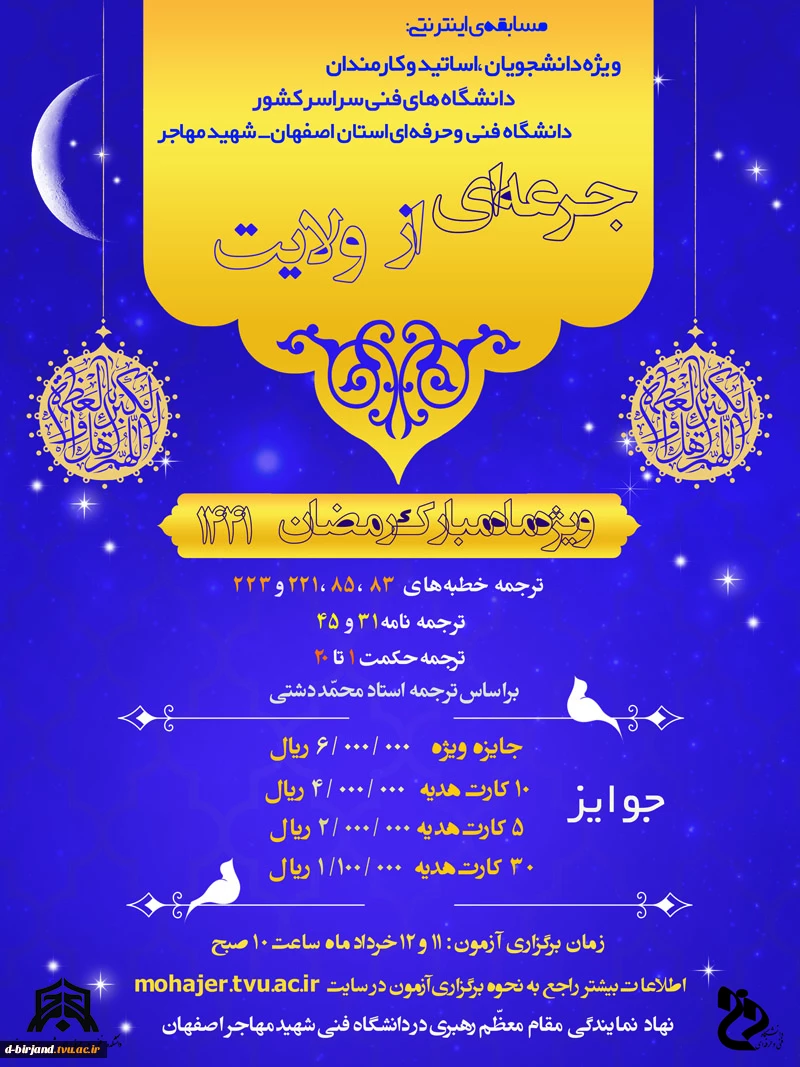 مسابقه‌ی اینترنتی:
ویژه دانشجویان، اساتید و کارمندان
دانشگاه های فنی سراسر کشور
دانشگاه فنی و حرفه ای استان اصفهان_ شهید مهاجر
جرعه‌ای از ولایت
اللهم اهل الکبریاء والعظمة
اللهم اهل الکبریاء والعظمة
ویژه ماه مبارک رمضان ۱۴۴۱
ترجمه خطبه های ۸۳، ۸۵، ۲۲۱ و ۲۲۳
ترجمه نامه ۳۱ و ۴۵
ترجمه حکمت ۱ تا ۲۰
بر اساس ترجمه استاد محمّد دشتی
جوایز
جایزه ویژه ۶/۰۰۰/۰۰۰ ریال
۱۰ کارت هدیه ۴/۰۰۰/۰۰۰ ریال
۵ کارت هدیه ۲/۰۰۰/۰۰۰ ریال
۳۰ کارت هدیه ۱/۱۰۰/۰۰۰ ریال
زمان برگزاری آزمون: ۱۱ و ۱۲ خرداد ماه ساعت ۱۰ صبح
اطلاعات بیشتر راجع به نحوه برگزاری آزمون در سایت mohajer.tvu.ac.ir
نهاد نمایندگی مقام معظّم رهبری در دانشگاه فنی شهید مهاجر اصفهان
دانشگاه فنی و حرفه‌ای
d-birjand.tvu.ac.ir